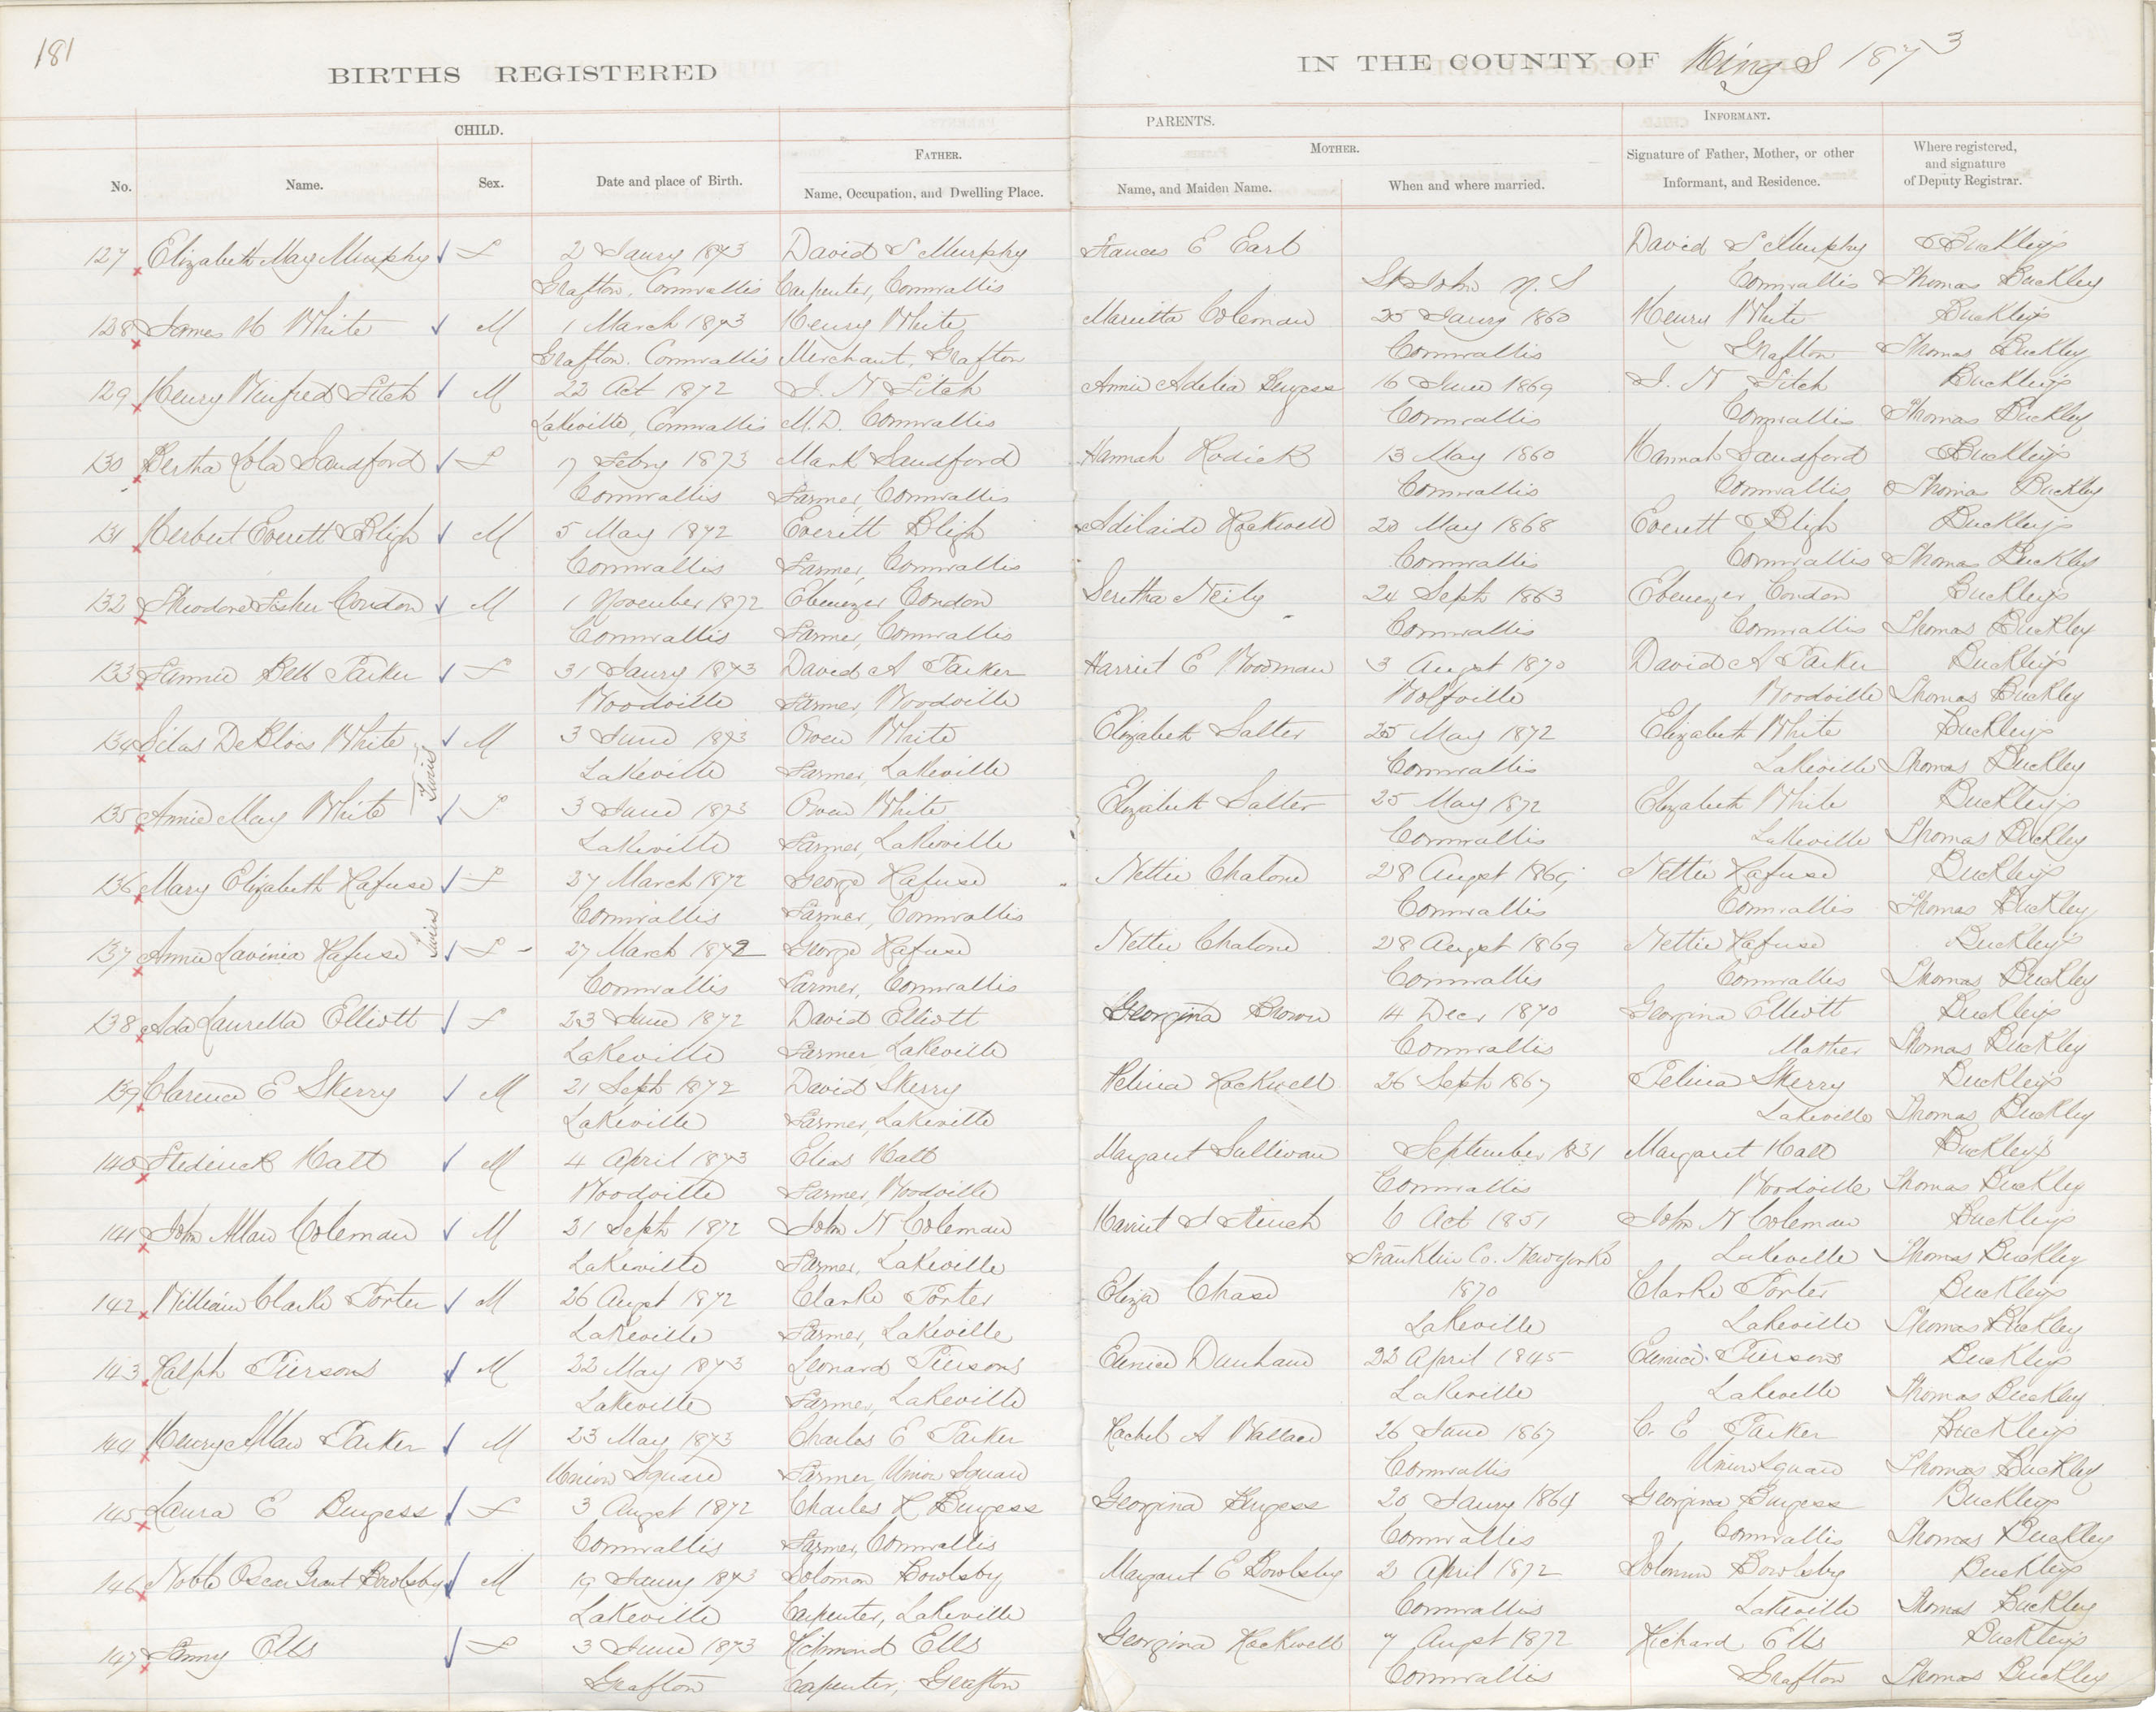 181
BIRTHS REGISTERED
IN THE COUNTY OF Kings 1873
CHILD.
PARENTS.
INFORMANT.
FATHER.
MOTHER.
No.
Name.
Sex.
Date and place of Birth.
Name, Occupation, and Dwelling Place.
Name, and Maiden Name.
When and where married.
Signature of Father, Mother, or other
Informant, and Residence.
Where registered,
and signature
of Deputy Registrar.
127 Elizabeth May Murphy F 2 Jany 1873 David S Murphy Frances E Earl David S Murphy Buckley's
Grafton, Cornwallis Carpenter, Cornwallis St John N. S Cornwallis Thomas Buckley
128 James H White M 1 March 1873 Henry White Marietta Coleman 25 Jany 1860 Henry White Buckley's
Grafton. Cornwallis Merchant, Grafton Cornwallis Grafton Thomas Buckley
129 Henry Winfred Fitch M 22 Oct 1872 J. N Fitch Annie Adelia Burgess 16 June 1869 J. N Fitch Buckley's
Lakeville, Cornwallis M.D. Cornwallis Cornwallis Cornwallis Thomas Buckley
130 Bertha Lola Sandford F 17 Febry 1873 Mark Sandford Hannah Rodick 13 May 1860 Hannah Sandford Buckley's
Cornwallis Farmer, Cornwallis Cornwallis Cornwallis Thomas Buckley
131 Herbert Everett Bligh M 5 May 1872 Everett Bligh Adilaide Rockwell 20 May 1868 Everett Bligh Buckley's
Cornwallis Farmer, Cornwallis Cornwallis Cornwallis Thomas Buckley
132 Theodore Fosher Condon M 1 November 1872 Ebenezer Condon Seretha Neily 24 Sept 1863 Ebenezer Condon Buckley's
Cornwallis Farmer, Cornwallis Cornwallis Cornwallis Thomas Buckley
133 Fannie Bell Parker F 31 Jany 1873 David A Parker Harriet E Woodman 3 Augst 1870 David A Parker Buckley's
Woodville Farmer, Woodville Wolfville Woodville Thomas Buckley
134 Silas DeBlois White M 3 June 1873 Owen White Elizabeth Salter 25 May 1872 Elizabeth White Buckley's
Twins
Lakeville Farmer, Lakeville Cornwallis Lakeville Thomas Buckley
135 Annie May White F 3 June 1873 Owen White Elizabeth Salter 25 May 1872 Elizabeth White Buckley's
Lakeville Farmer, Lakeville Cornwallis Lakeville Thomas Buckley
136 Mary Elizabeth Rafuse F 27 March 1872 George Rafuse Nettie Chalone 28 Augst 1869 Nettie Rafuse Buckley's
Twins
Cornwallis Farmer, Cornwallis Cornwallis Cornwallis Thomas Buckley
137 Annie Lavinia Rafuse F 27 March 1872 George Rafuse Nettie Chalone 28 Augst 1869 Nettie Rafuse Buckley's
Cornwallis Farmer, Cornwallis Cornwallis Cornwallis Thomas Buckley
138 Ada Lauretta Elliott F 23 June 1872 David Elliott Georgina Brown 14 Decr 1870 Georgina Elliott Buckley's
Lakeville Farmer Lakeville Cornwallis Mother Thomas Buckley
139 Clarence E Skerry M 21 Sept 1872 David Skerry Rockwell 26 Sept 1867 Skerry Buckley's
Lakeville Farmer, Lakeville Lakeville Thomas Buckley
140 Frederick Hall M 4 April 1873 Elias Hall Margaret Sullivan September 1831 Margaret Hall Buckley's
Woodville Farmer, Woodville Cornwallis Woodville Thomas Buckley
141 John Allan Coleman M 21 Sept 1872 John N Coleman Harriet 6 Oct 1851 John N Coleman Buckley's
Lakeville Farmer, Lakeville Franklin Co. Newyorke Lakeville Thomas Buckley
142 William Clarke Porter M 26 Augst 1872 Clarke Porter Eliza Chase 1870 Clarke Porter Buckleys
Lakeville Farmer, Lakeville Lakeville Lakeville Thomas Buckley
143 Ralph Piersons M 22 May 1873 Leonard Piersons Eunice Dunham 22 April 1845 Eunice Piersons Buckley's
Lakeville Farmer, Lakeville Lakeville Lakeville Thomas Buckley
144 Henry Allan Parker M 23 May 1873 Charles E Parker Rachel A Wallace 26 June 1867 C. E Parker Buckley's
Union Square Farmer Union Square Cornwallis Union Square Thomas Buckley
145 Laura E Burgess F 3 Augst 1872 Charles R Burgess Georgina Burgess 20 Jany 1864 Georgina Burgess Buckley's
Cornwallis Farmer, Cornwallis Cornwallis Cornwallis Thomas Buckley
146 Noble Oscar Grant Bowlsby M 19 Jany 1873 Solomon Bowlsby Margaret E Bowlsby 2 April 1872 Solomon Bowlsby Buckley's
Lakeville Carpenter, Lakeville Cornwallis Lakeville Thomas Buckley
147 Fanny Ells F 3 June 1873 Richmond Ells Georgina Rockwell 7 Augst 1872 Richard Ells Buckley's
Grafton Carpenter, Grafton Cornwallis Grafton Thomas Buckley